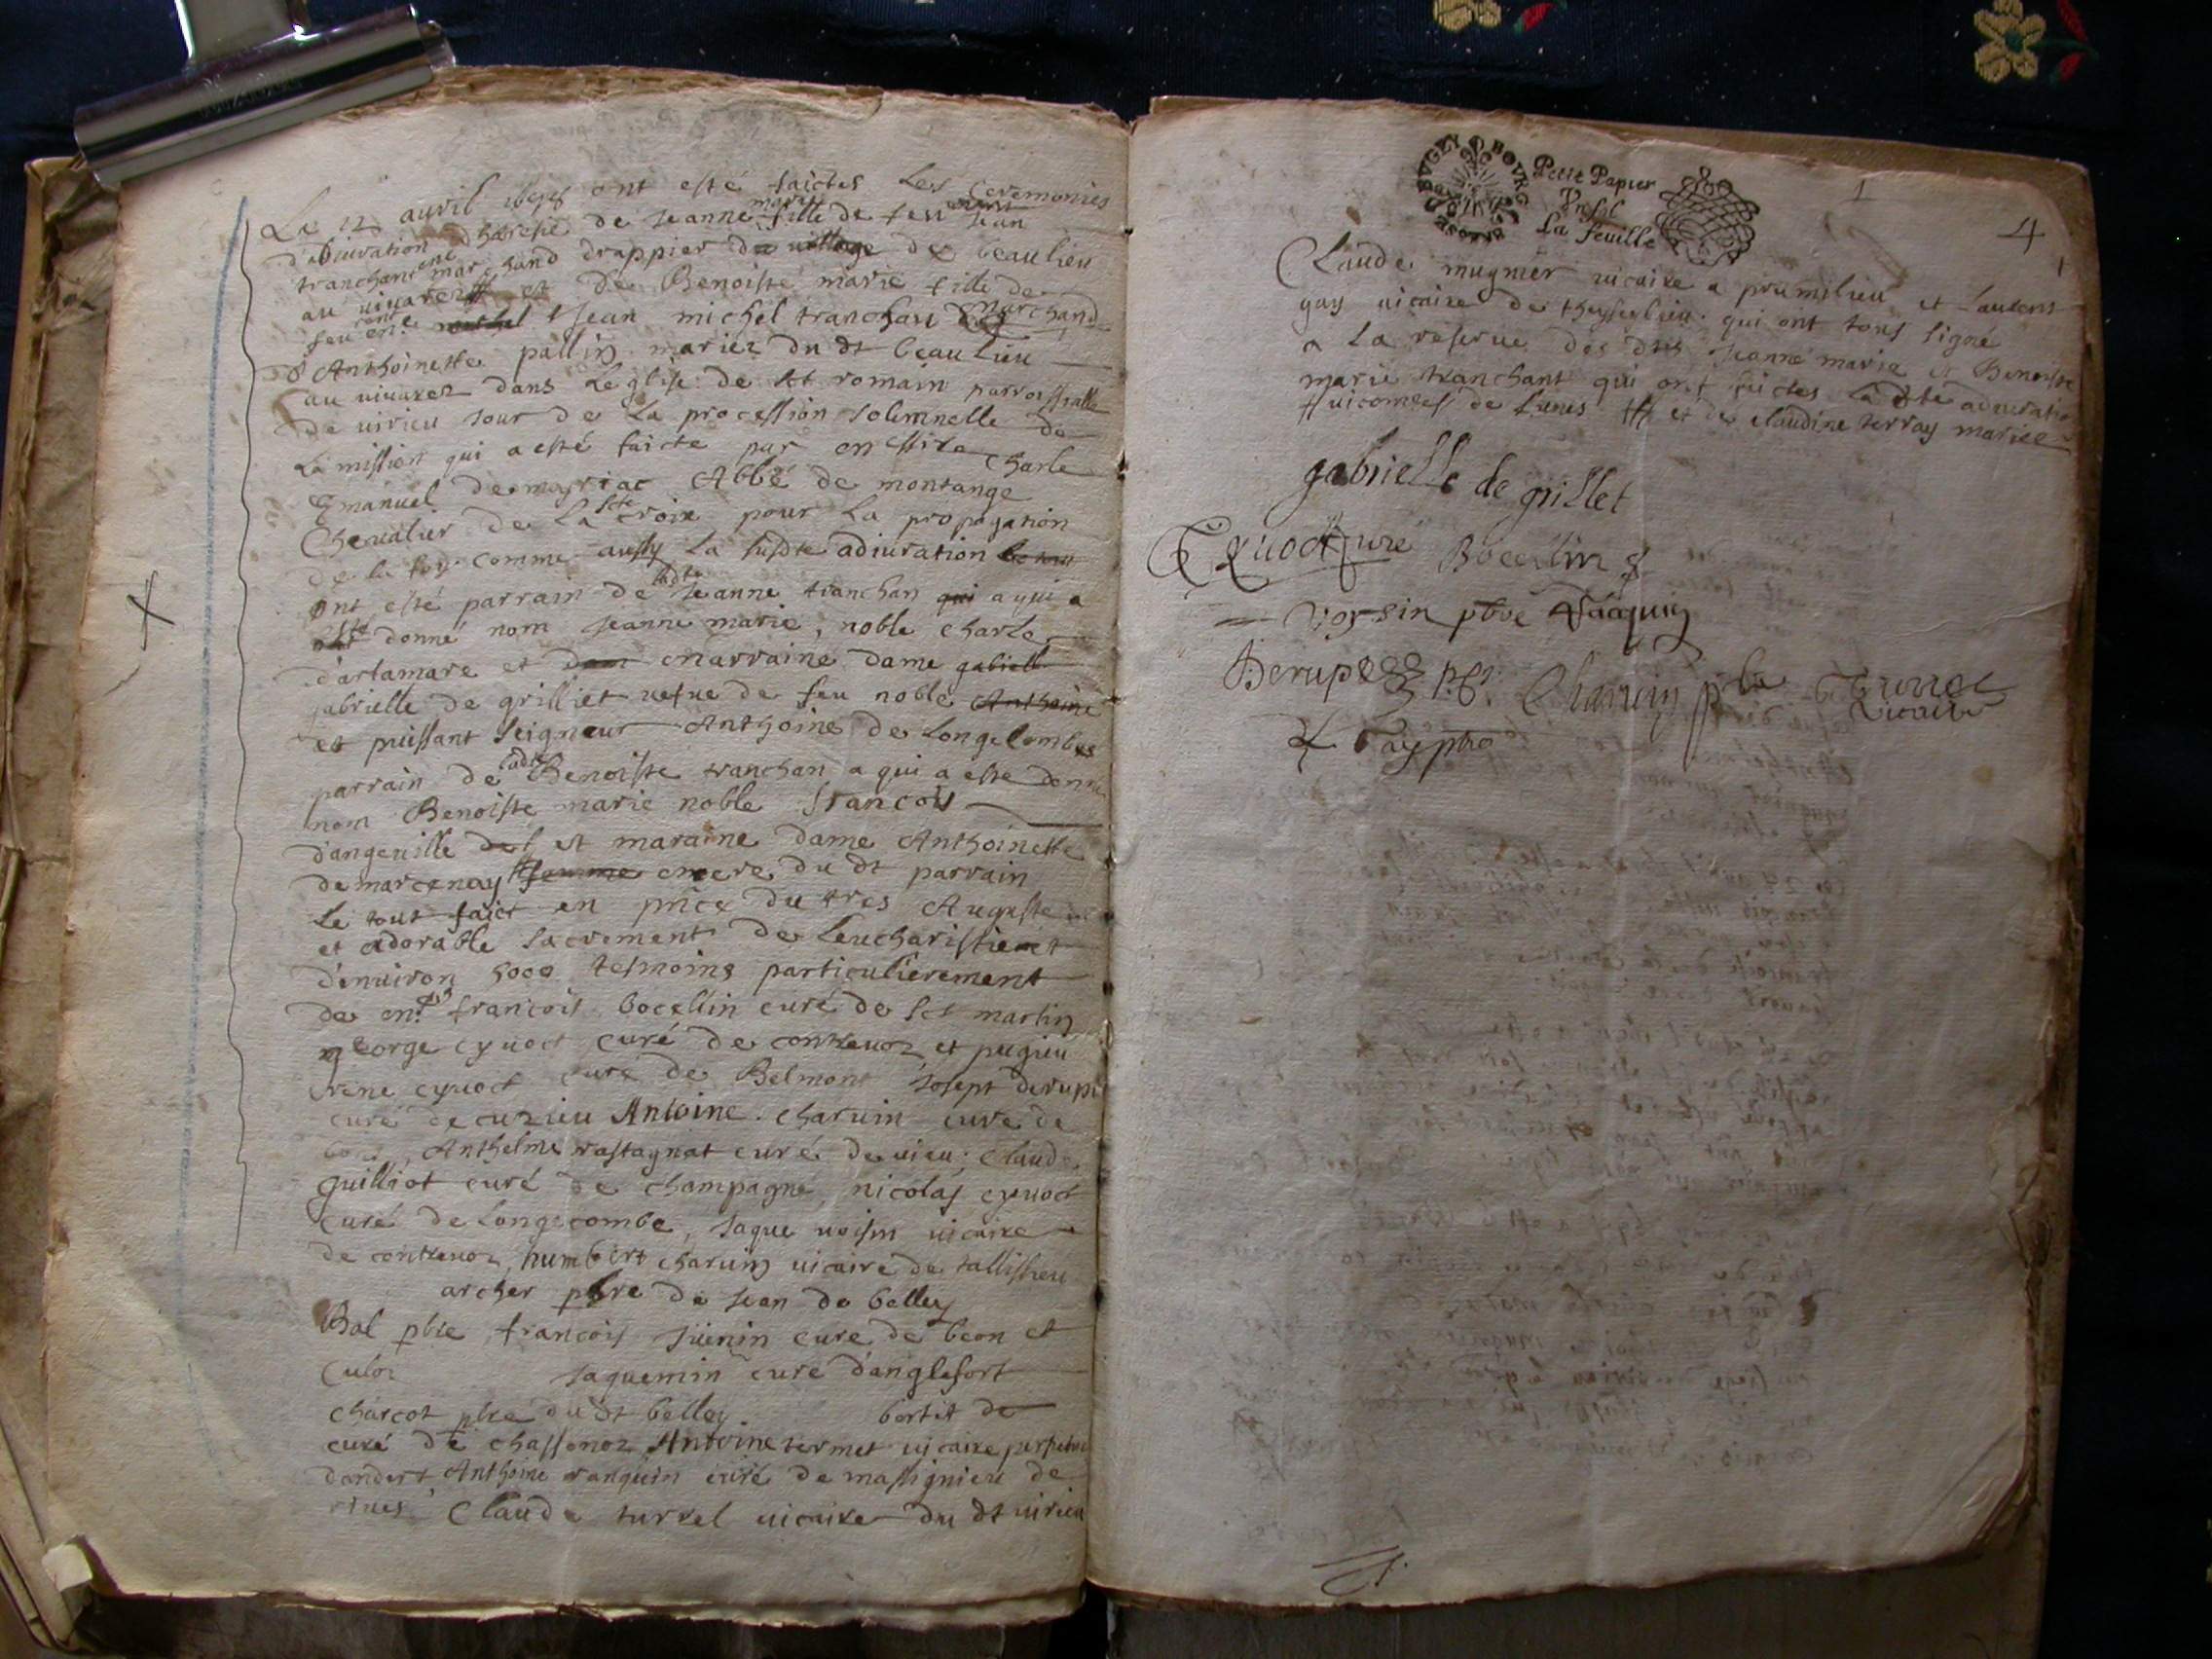 Le 12 auril ont esté faictes Les Ceremonies
d'abiuration d'haresie de Jeanne marie fille de feu Jean
tranchant marchand drappier du village de beaulieu
au uiuarez et de Benoiste marie fille de
feu Jean michel tranchan marchand
d'Anthoinette pallin mariez du dt beaulieu
au uiuarez dans Leglise de St romain parroissialle
de uirieu Jour de La procession solemnelle de
La mission qui a esté faicte par messire Charle
Emanuel de mayriac Abbé de montange
Cheualier de La ste Croix pour La propagation
de la foy comme aussy La susdte adiuration
ont esté parrain de ladte Jeanne tranchan qui a qui a
esté donné nom Jeanne marie, noble Charle
d'artamare et dam marraine dame gabiell
gabrielle de grilliet uefue de feu noble Anthoine
et puissant Seigneur Anthoine de Longecombes
parrain de ladte Benoiste tranchan a qui a esté donné
nom Benoiste marie noble francois
d'angeuille et maraine dame Anthoinette
de marcenay femme mere du dt parrain
Le tout faict en pnce du tres Auguste
et adorable sacrement de Leucharistie et
d'enuiron 5000 tesmoins particulierement
de mre francois bocellin curé de St martin
george cyuoct curé de contreuoz et pugieu
rene cyuoct curé de Belmont Josept derupt
curé de cuzieu Antoine charuin cure de
Anthelme rastagnat curé de uieu, Claude
guilliot curé de champagne, nicolas cyuoct
curé de Longecombe, Jaque uoisin uicaire
de contreuoz, humbert charuin uicaire de tallissieu
archer pbre de Jean de belley
Bal pbre francois Juenin cure de beon et
Culoz Jaquemin curé d'anglefort
charcot pbre du dt belley bertit de
curé de chassonoz Antoine termet uicaire perpetuel
dandert Anthoine ranquin curé de massignieu de
riues Claude turrel uicaire du dt uirieu
BVGEY BOVRG
Petit Papier
La feuille
1
4
Claude mugnier uicaire a prumilieu et Laurens
gay uicaire de theyselieu qui ont tous signé
a La reserue des dtes Jeanne marie et Benoiste
marie tranchant qui ont faictes La dte adiuration
uicomtes de Lunis et de claudine terray mariee
gabrielle de grillet
Cyuoct curé Bocellin
Voysin pbre Jaquin
Derupt Charuin Turrel
uicaire
L Gay pbre